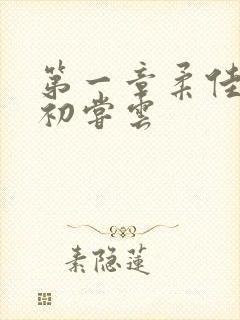 第一章柔佳
初尝云
素隐莲